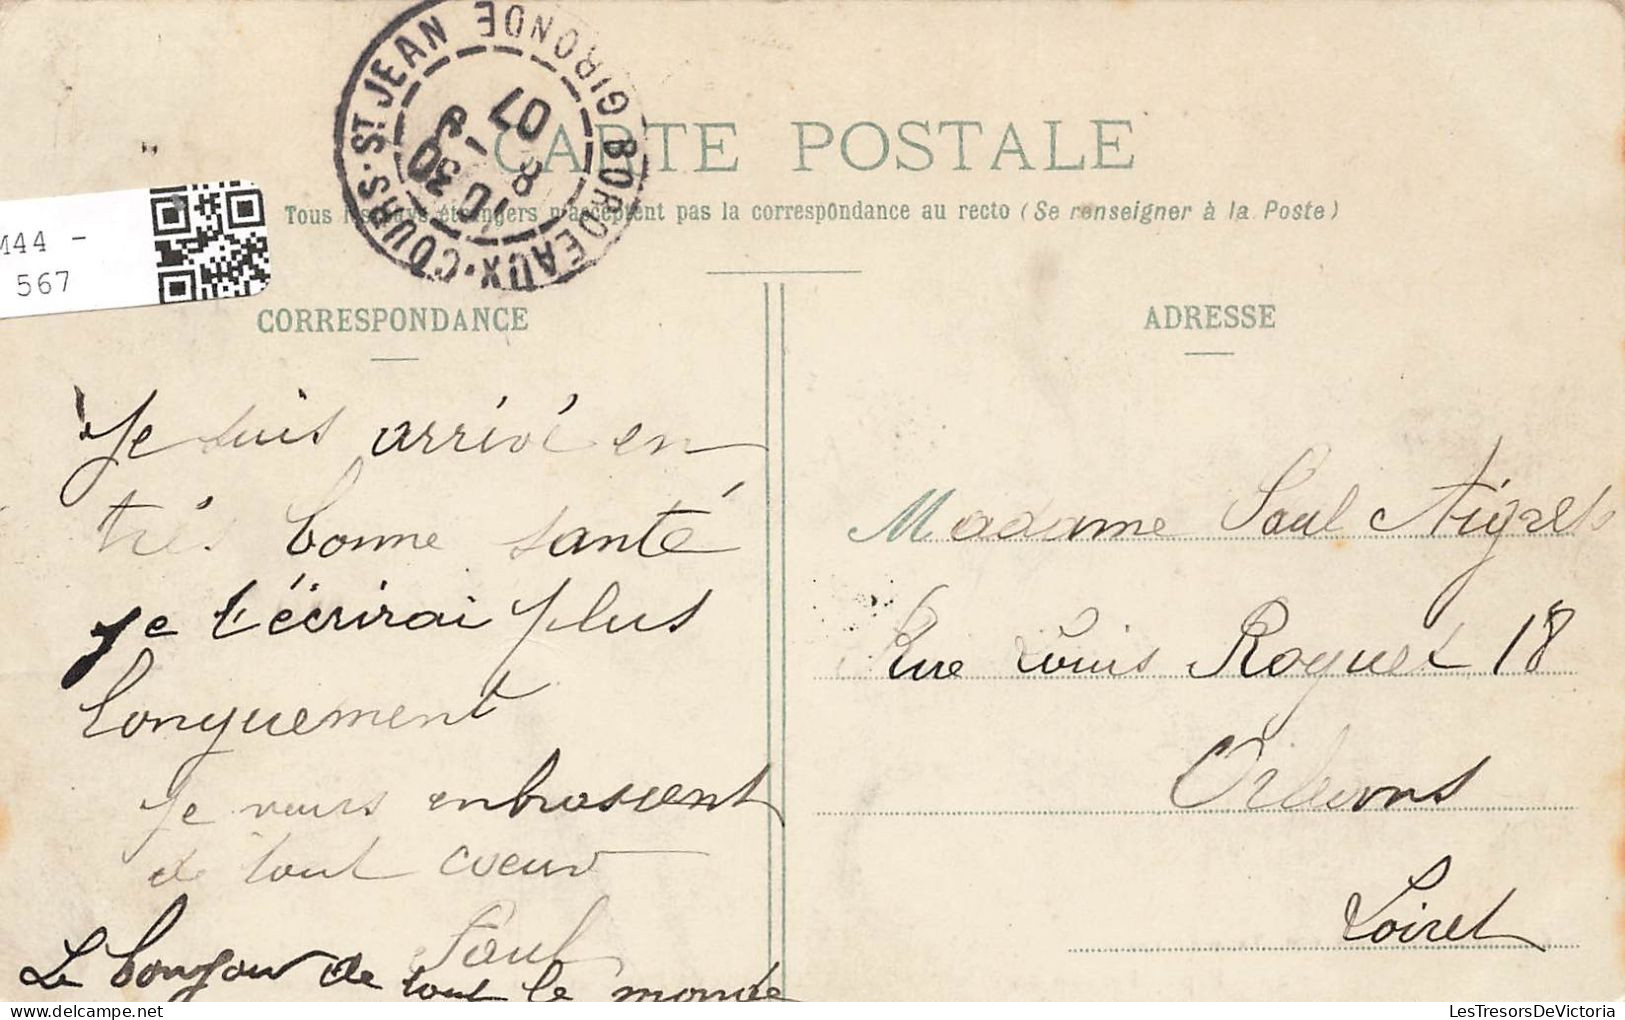 BORDEAUX-COURS-St JEAN GIRONDE
10 30
8 -9
07
CARTE POSTALE
Tous les pays étrangers n'acceptent pas la correspondance au recto (Se renseigner à la Poste)
M44 -
567
CORRESPONDANCE
Je suis arrivé en
très bonne santé
je t'écrirai plus
longuement
je vous enbrassent
de tout coeur
Paul
Le bonjour de tout le monde
ADRESSE
Madame Paul Aigret
Rue Louis Roguet 18
Orléans
Loiret
LesTresorsDeVictoria